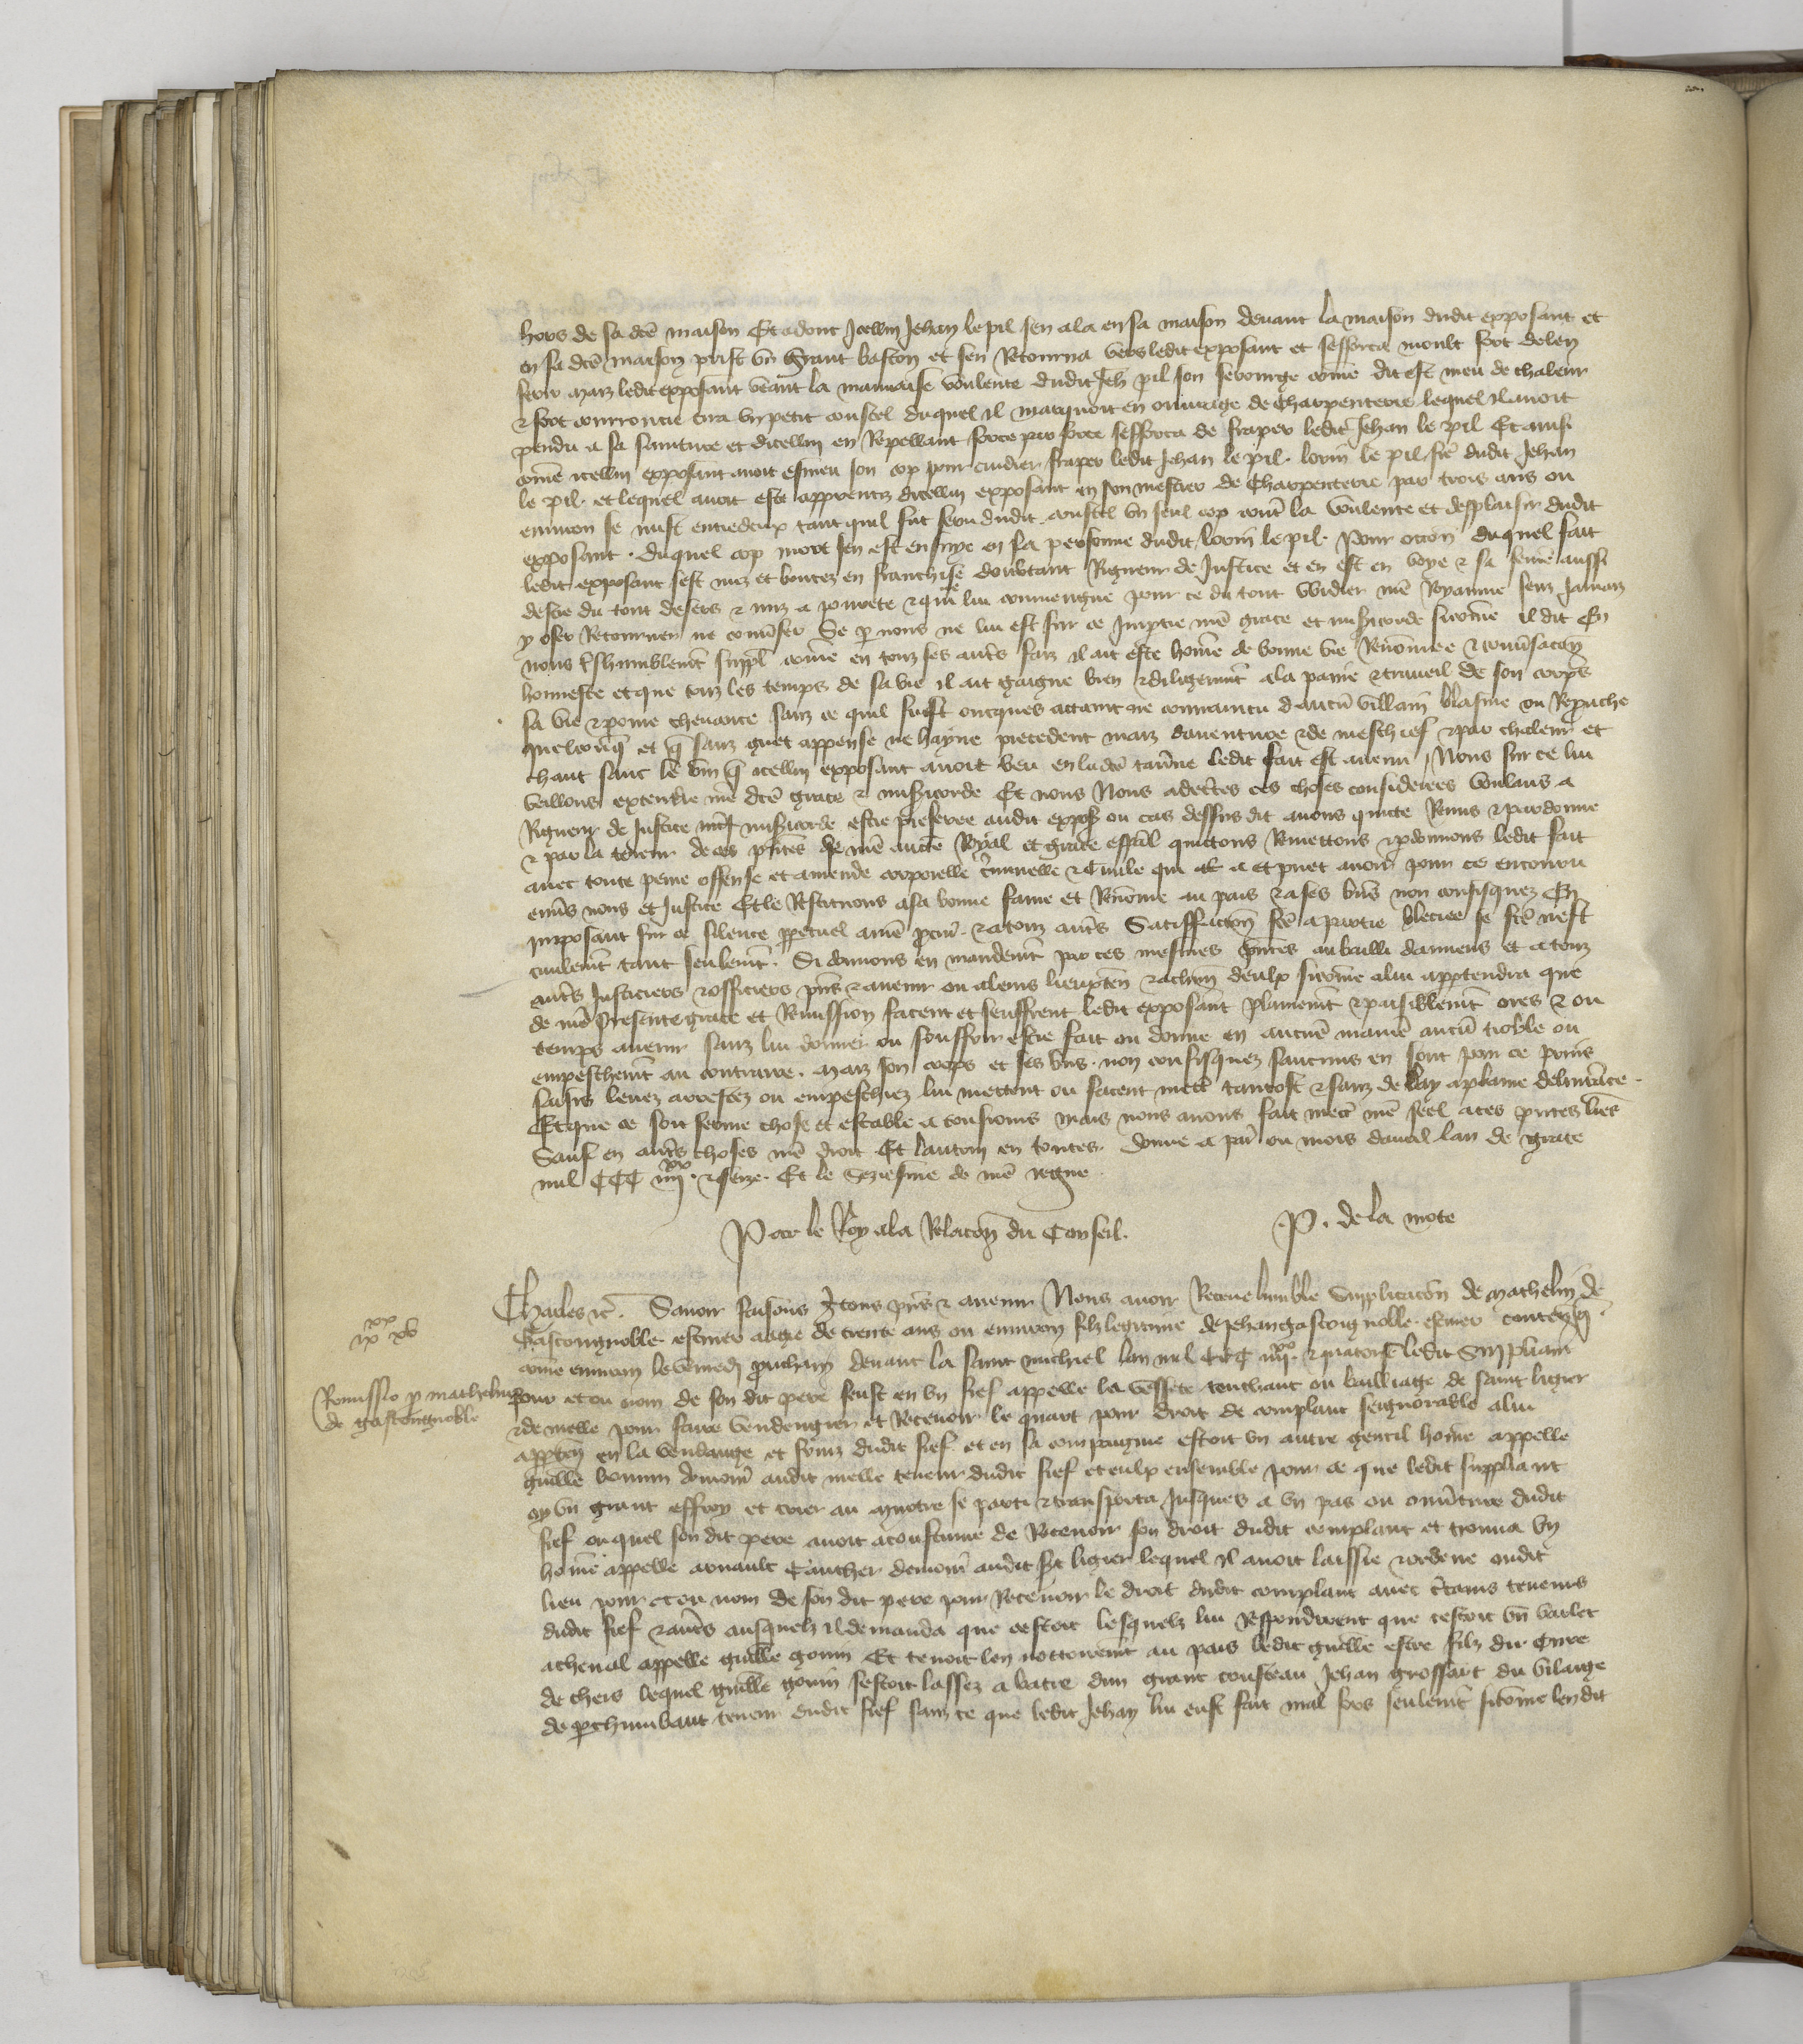 hors de sa dcē maison Et adont Icellui Jehan le pil sen ala en sa maison devant la maison dudit exposant et
en sa dcē maison prist un grant baston et sen Retourna vers ledit exposant et sefforca moult fort de len
ferir Maiz ledit exposant veant la mauvaise voulente dudit Jeh pil son serourge cōme dit est meu de chaleur
& fort courroucie tira un petit coustel duquel il marquoit en ouvrage de charpenterie lequel il avoit
pendu a sa sainture et dicellui en Repellant force par force sefforca de fraper ledit Jehan le pil Et ainsi
cōme icellui exposant avoit esmeu son cop pour cuidier fraper ledit Jehan le pil. lorin le pil frē dudit Jehan
le pil. et lequel avoit este apprentiz dicellui exposant en son mestier de Charpenterie par trois ans ou
environ se mist entredeux tant quil fut feru dudit coustel un seul cop contē la voulente et desplaisir dudit
exposant. duquel cop mort sen est ensuye en la personne dudit lorin le pil. Pour occōn duquel fait
ledit exposant sest miz et boutez en franchise doubtant Rigueur de Justice et en est en voye & sa femē aussi
destre du tout desers & miz a povrete & que lui conviengne pour ce du tout vuidier nrē Royaume senz Jamaiz
y oser Retourner ne convser Se p nous ne lui est sur ce Impartie nrē grace et misericorde sicōme il dit En
nous treshumblemt suppl cōme en touz ses autrs faiz il ait este homē de bonne vie Renōmee & convsacōn
honneste et que touz les temps de sa vie il ait gaigne bien & diligemmt a la paine & travail de son corps
sa vie & povre chevance sanz ce quil fust oncques actaint ne convaincu daucū villain blasme ou Repruche
quelcōnq et q sanz guet appense ne hayne precedent maiz daventure & de meschief & par chaleur et
chaut sanc le vin q icellui exposant avoit beu en ladcē tavrne ledit fait est avenu / Nous sur ce lui
vueillons extendre nrē dcē grace & misericorde Et nous Nous adectes ces choses considerees voulans a
Rigueur de Justice misericorde estre preferee audit expos ou cas dessus dit avons quicte Remis & pardonne
& par la teneur de ces prntes de nrē aucte Royal et grace espāl quictons Remettons & pdonnons ledit fait
avec toute peine offense et amende corporelle criminelle & Civile qui a et puet avoir pour ce encouru
envs nous et Justice Et le Restituons a sa bonne fame et Renōmee au pais & a ses biens non confisquez En
Imposant sur ce silence perpetuel a nrē procur. & a touz autrs Satisfaccōn fcē a partie blecee se fcē nest
civilemt tant seulemt. Si donnons en mandemt par ces mesmes prntes au bailli damiens et a touz
autrs Justiciers & officiers prns & avenir ou a leurs lieuxten & a chun deulx sicōme a lui appartendra que
de nrē presente grace et Remission facent et seuffrent ledit exposant plainemt & paisiblemt ores & ou
temps avenir sanz lui donner ou souffrir estre fait ou donne en aucunē manierē aucū troble ou
empeschemt au contraire. Maiz son corps et ses biens non confisquez saucuns en sont pour ce prins
saisis levez arrestez ou empeschiez lui mettent ou facent mectr tantost & sanz delay a plaine delivrance.
Et que ce soit ferme chose et estable a tousiours mais nous avons fait mectr nrē seel a ces prntes lres
Sauf en autrs choses nrē droit Et lautruy en toutes. Donne a paris ou mois davril lan de grace
mil CCC iiii xx & seize. Et le seziesme de nrē regne
Par le Roy a la Relacōn du Conseil. P. de la mote
Charles rc. Savoir faisons A tous prns & avenir Nous avoir Receue humble Supplicacōn de Mathelin de
Gascougnolle escuier aagie de trente ans ou environ filz legitime de Jehan gascougnolle escuier contenant
cōme environ le vendredi prouchain devant la saint michiel lan mil CCC iiii xx & quatorze ledit Suppliant
pour et ou nom de son dit pere feust en un fief appelle la vessete touchant ou bailliage de saint ligier
& de melle pour faire vendengier et Recevoir le quart pour droit de complant seignorable a lui
apparten en la vendange et fruiz dudit fief et en sa compaignie estoit un autre gentil homē appelle
guillē bonnin demorāt audit melle teneur dudit fief et eulx ensemble pour ce que ledit suppliant
oy un grant effroy et crier au murtre se parti & transporta Jusques a un pas ou ouverture dudit
fief ouquel son dit pere avoit acoustume de Recevoir son droit dudit complant et trouva un
homē appelle arnault Gaucher demorāt audit st ligier lequel il avoit laissie & ordene oudit
lieu pour et ou nom de son dit pere pour Recevoir le droit dudit complant avec crtains teneurs
dudit fief & autrs ausquelz il demanda que cestoit lesquelz lui Respondirent que cestoit un varlet
a cheval appelle guillē gonin Et tenoit len nottoiremt au pais ledit guillē estre filz du Cure
de chers lequel guillē gonin sestoit lassez a batre dun grant cousteau Jehan grossart du vilaige
de perchimbaut teneur dudit fief sanz ce que ledit Jehan lui eust fait mal fors seulemt sicōme len dit
ix xx xv
Remissio p mathelino
de gascougnolle